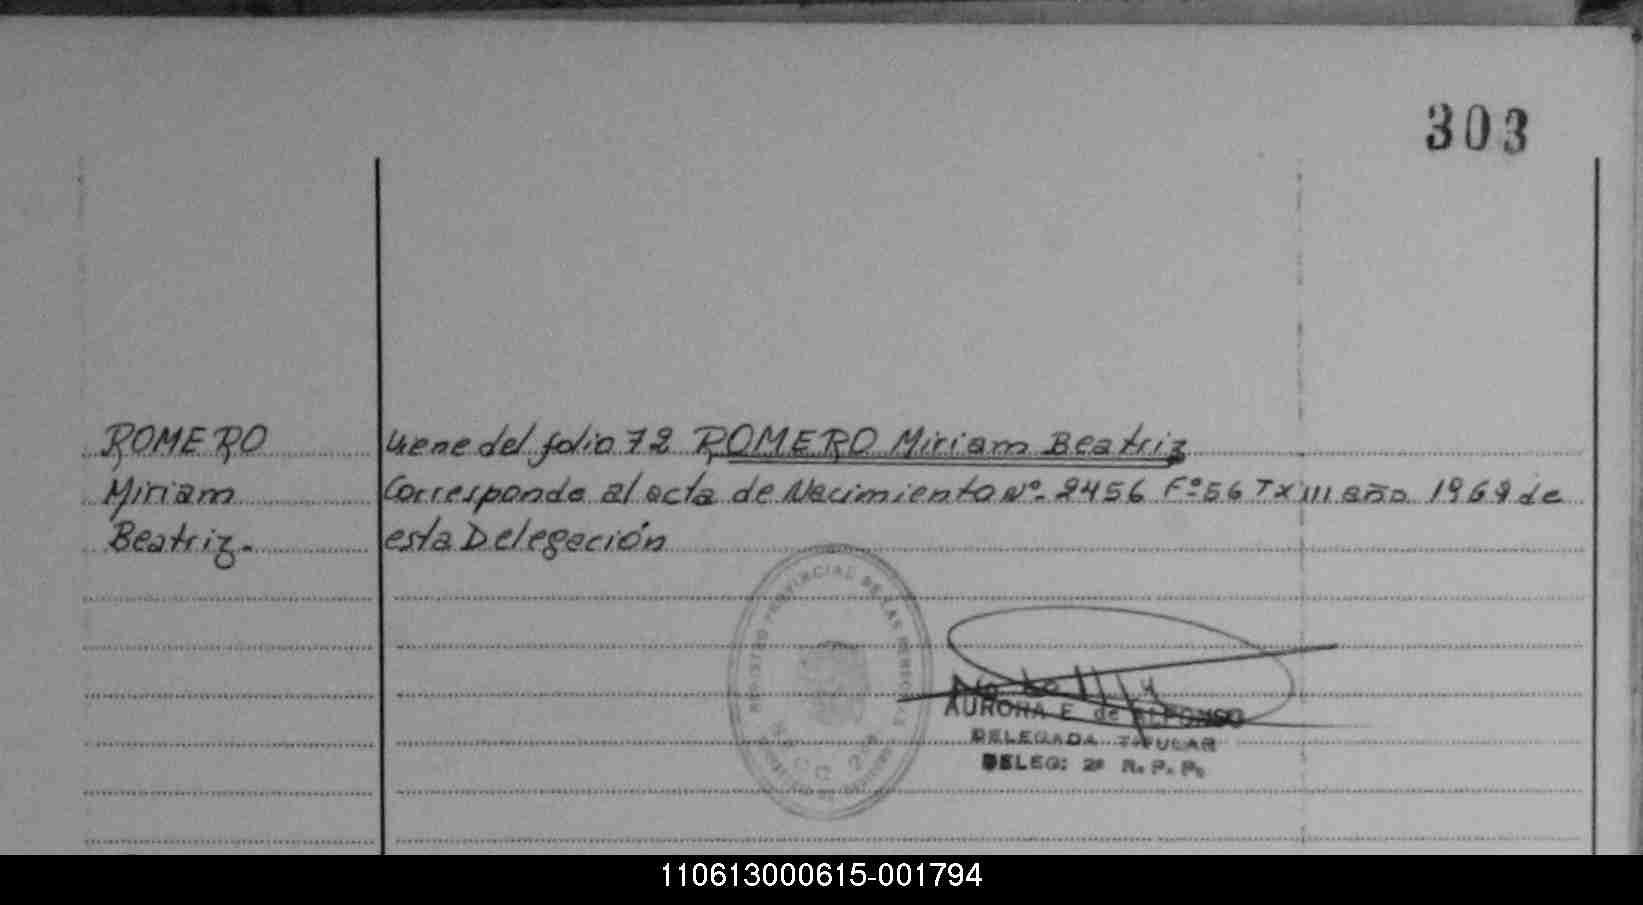 303
ROMERO Viene del folio 72 ROMERO Miriam Beatriz
Miriam Corresponde al acta de Nacimiento Nº 2456 Fº 56 T XIII año 1969 de
Beatriz.- esta Delegación
REGISTRO PROVINCIAL DE LAS PERSONAS
AURORA E. de ALFONSO
DELEGADA TITULAR
DELEG: 2ª R. P. P.
110613000615-001794